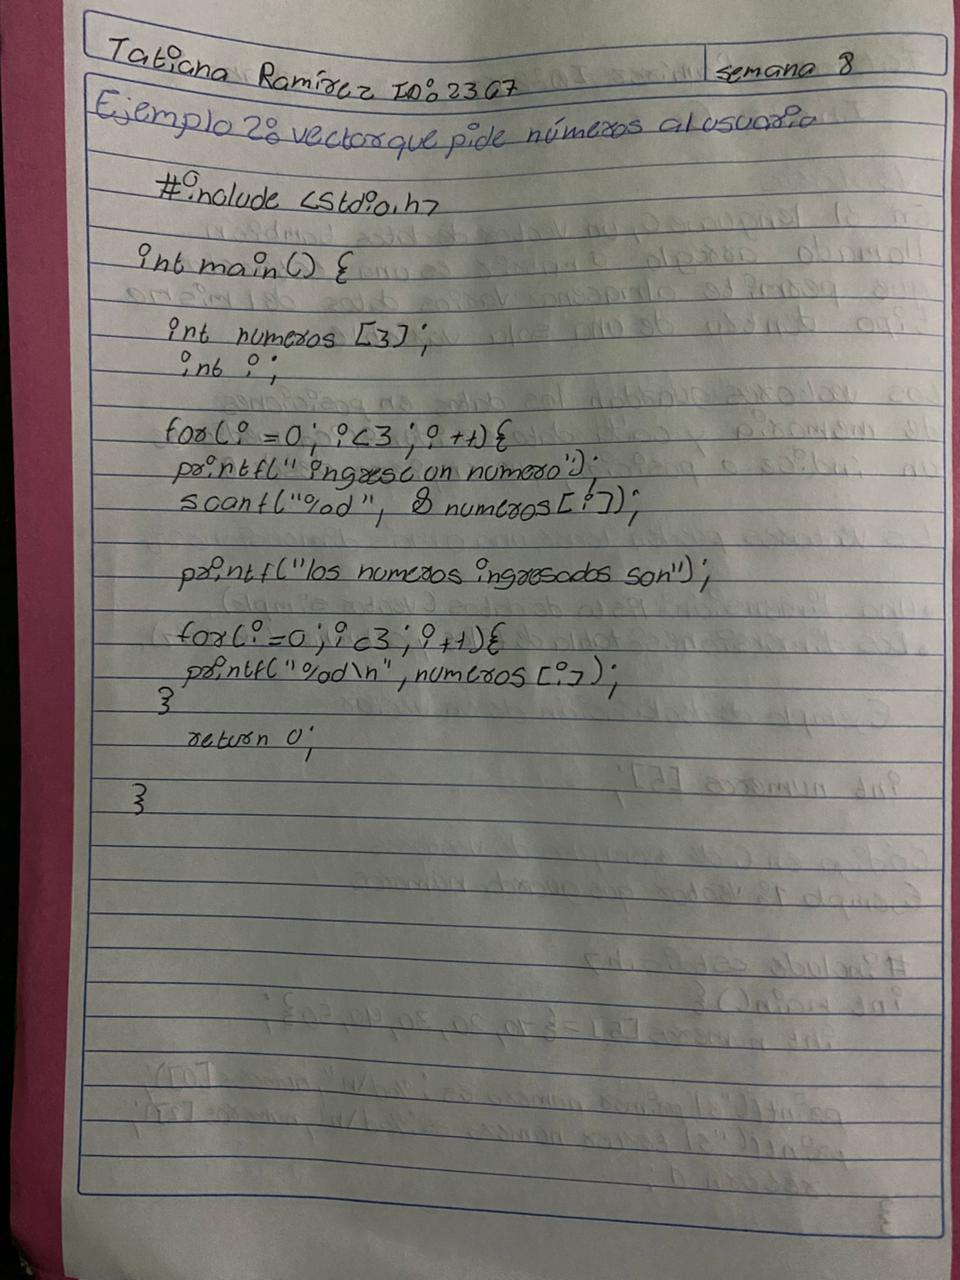 Tatiana Ramírez ID: 2367
semana 8
Ejemplo 2: vector que pide números al usuario
#include <stdio.h>
int main() {
int numeros [3];
int i;
for(i=0; i<3; i++){
printf("ingrese un numero");
scanf("%d", & numeros[i]);
printf("los numeros ingresados son");
for(i=0; i<3; i++){
printf("%d\n", numeros [i]);
}
return 0;
}